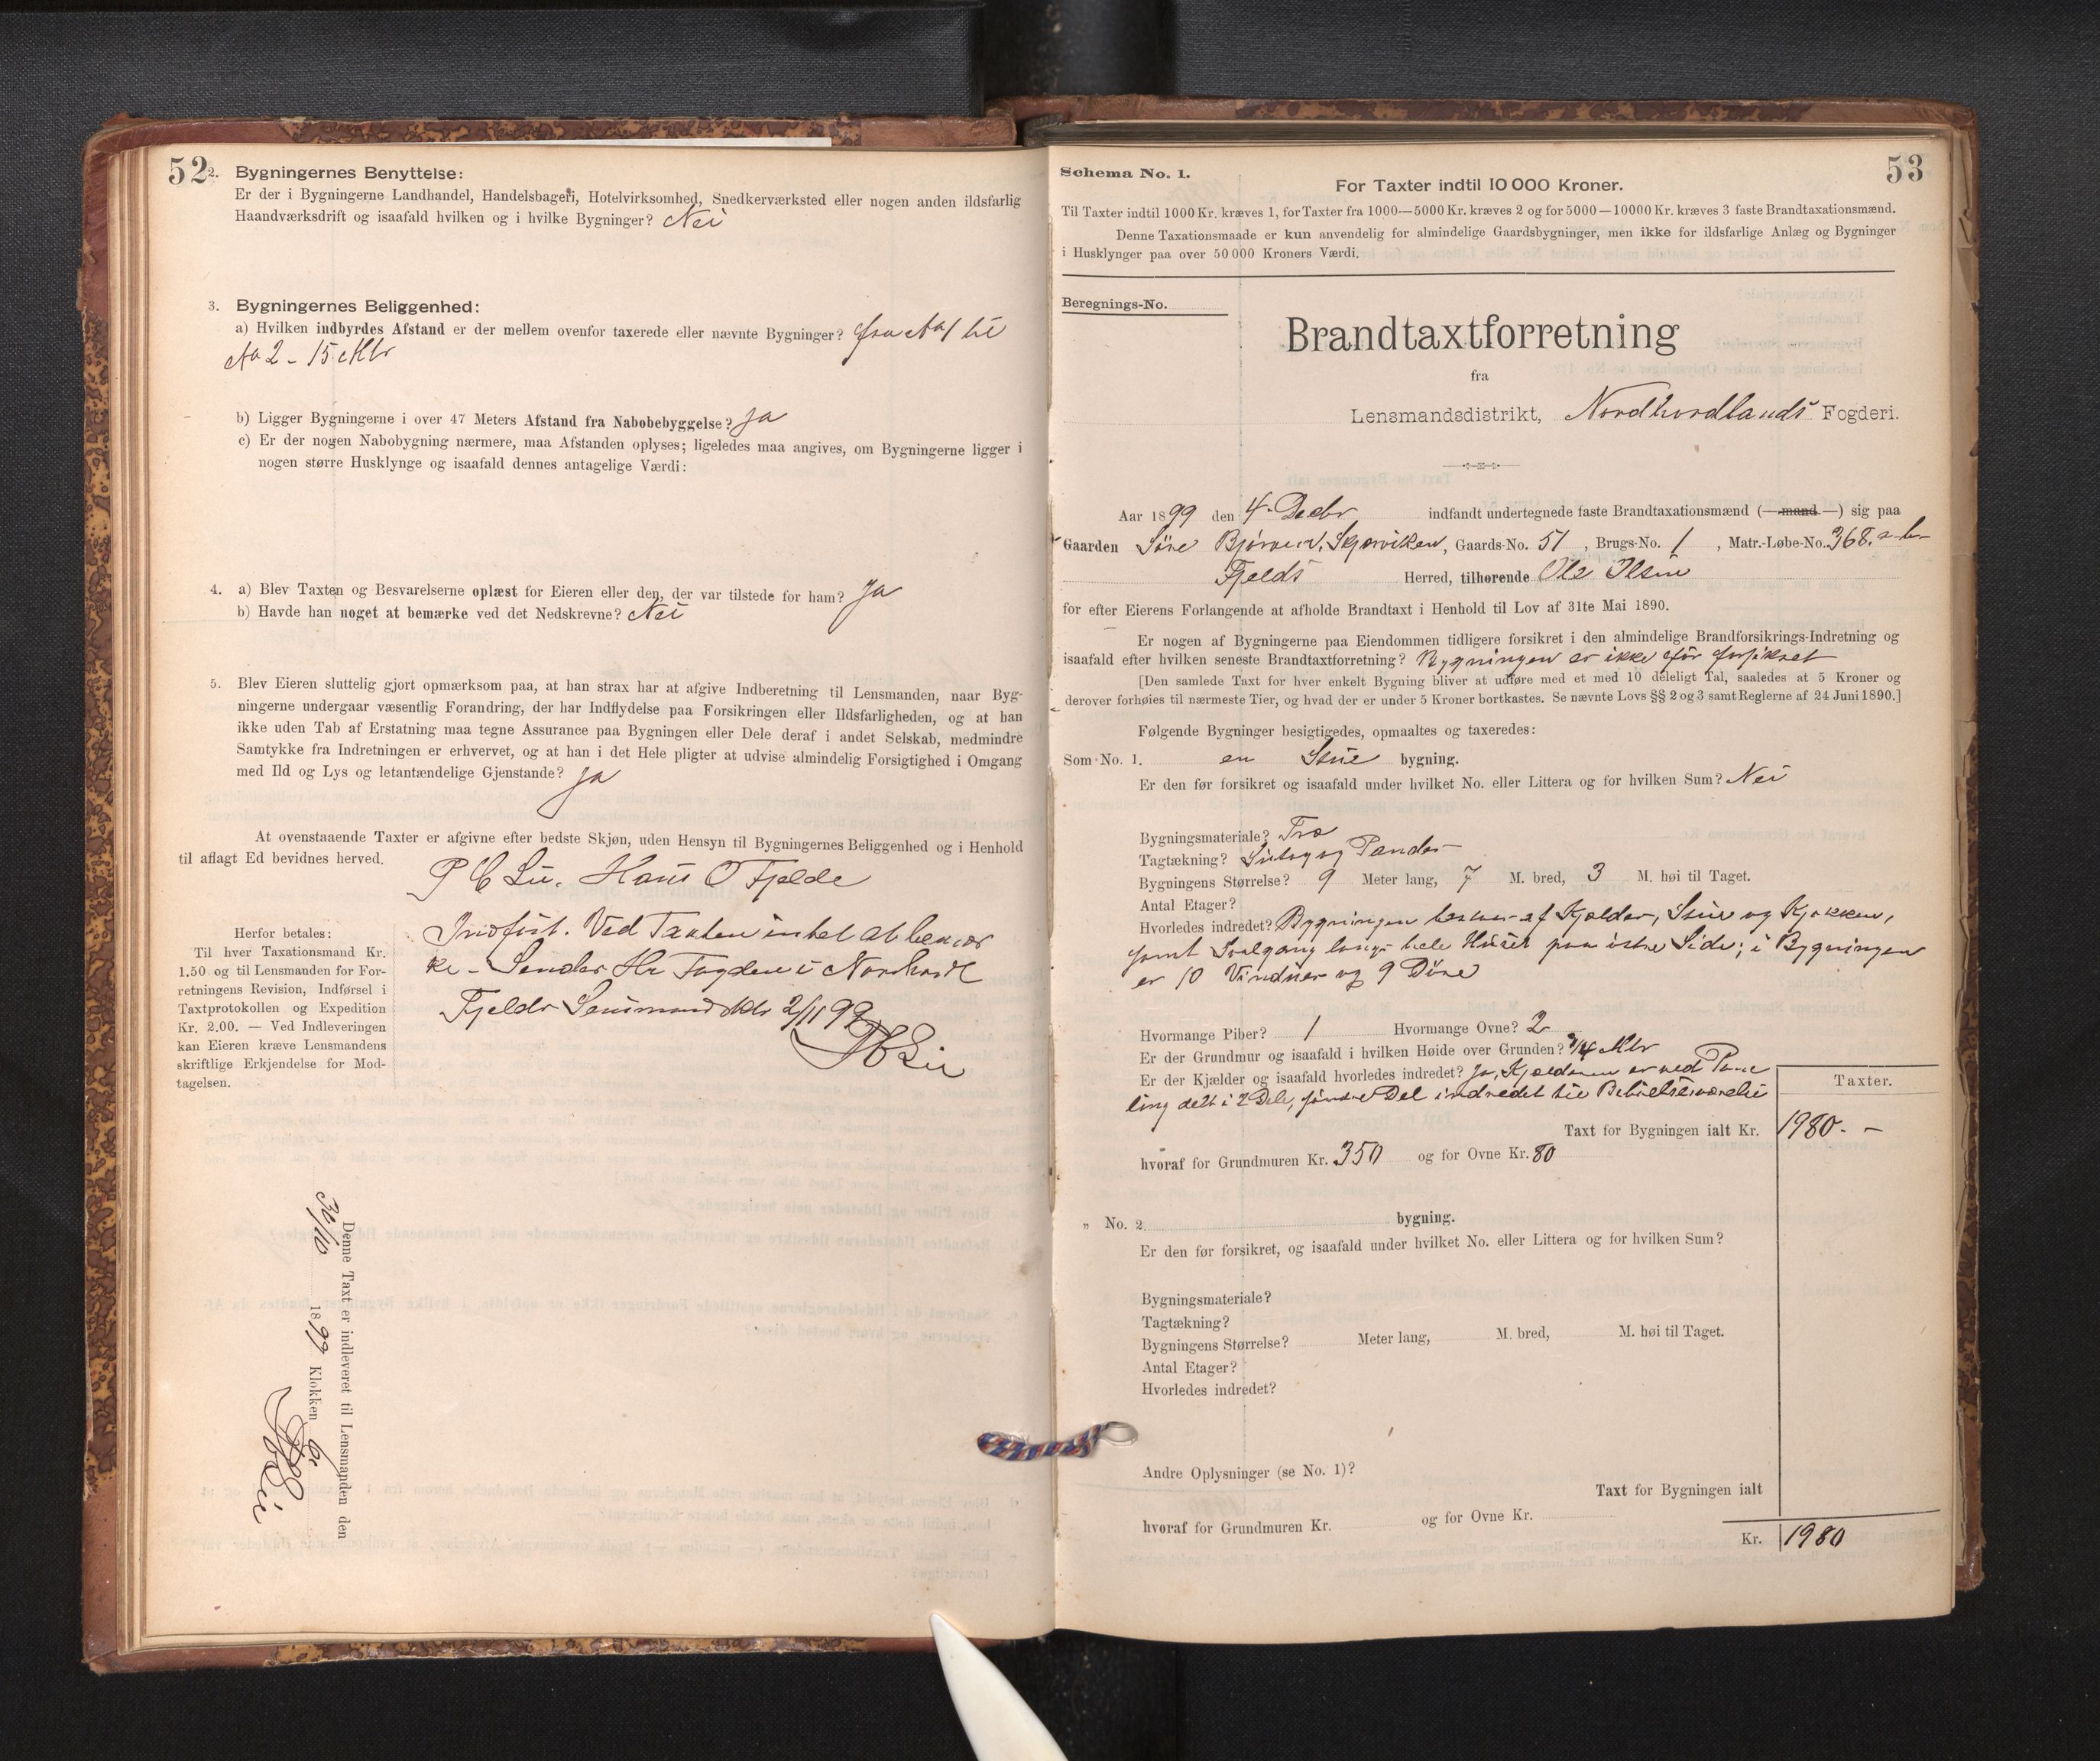 52
2. Bygningernes Benyttelse:
Er der i Bygningerne Landhandel, Handelsbageri, Hotelvirksomhed, Snedkerværksted eller nogen anden ildsfarlig
Haandværksdrift og isaafald hvilken og i hvilke Bygninger? Nei
3. Bygningernes Beliggenhed:
a) Hvilken indbyrdes Afstand er der mellem ovenfor taxerede eller nævnte Bygninger? fra No 1 til
No 2 - 15 Mtr
b) Ligger Bygningerne i over 47 Meters Afstand fra Nabobebyggelse? Ja
c) Er der nogen Nabobygning nærmere, maa Afstanden oplyses; ligeledes maa angives, om Bygningerne ligger i
nogen større Husklynge og isaafald dennes antagelige Værdi:
4. a) Blev Taxten og Besvarelserne oplæst for Eieren eller den, der var tilstede for ham? Ja
b) Havde han noget at bemærke ved det Nedskrevne? Nei
5. Blev Eieren sluttelig gjort opmærksom paa, at han strax har at afgive Indberetning til Lensmanden, naar Byg-
ningerne undergaar væsentlig Forandring, der har Indflydelse paa Forsikringen eller Ildsfarligheden, og at han
ikke uden Tab af Erstatning maa tegne Assurance paa Bygningen eller Dele deraf i andet Selskab, medmindre
Samtykke fra Indretningen er erhvervet, og at han i det Hele pligter at udvise almindelig Forsigtighed i Omgang
med Ild og Lys og letantændelige Gjenstande? Ja
At ovenstaaende Taxter er afgivne efter bedste Skjøn, uden Hensyn til Bygningernes Beliggenhed og i Henhold
til aflagt Ed bevidnes herved.
Hans O Fjelde
Herfor betales:
Til hver Taxationsmand Kr.
1.50 og til Lensmanden for For-
retningens Revision, Indførsel i
Taxtprotokollen og Expedition
Kr. 2.00. — Ved Indleveringen
kan Eieren kræve Lensmandens
skriftlige Erkjendelse for Mod-
tagelsen.
Indført. Ved Taxten intet at bemær
ke - Sendes Hr Fogden i Nordhordl
Fjelds 2/11 99
Denne Taxt er indleveret til Lensmanden den
30/10 1899 Klokken
53
Schema No. 1.
For Taxter indtil 10 000 Kroner.
Til Taxter indtil 1000 Kr. kræves 1, for Taxter fra 1000—5000 Kr. kræves 2 og for 5000—10000 Kr. kræves 3 faste Brandtaxationsmænd.
Denne Taxationsmaade er kun anvendelig for almindelige Gaardsbygninger, men ikke for ildsfarlige Anlæg og Bygninger
i Husklynger paa over 50 000 Kroners Værdi.
Beregnings-No.
Brandtaxtforretning
fra
Lensmandsdistrikt, Nordhordlands Fogderi.
Aar 1899 den 4. Decbr indfandt undertegnede faste Brandtaxationsmænd (—mand—) sig paa
Gaarden Søre, Gaards-No. 51, Brugs-No. 1, Matr.-Løbe-No. 368. a b
Fjelds Herred, tilhørende Ole Olsen
for efter Eierens Forlangende at afholde Brandtaxt i Henhold til Lov af 31te Mai 1890.
Er nogen af Bygningerne paa Eiendommen tidligere forsikret i den almindelige Brandforsikrings-Indretning og
isaafald efter hvilken seneste Brandtaxtforretning? Bygningen er ikke før forsikret
[Den samlede Taxt for hver enkelt Bygning bliver at udføre med et med 10 deleligt Tal, saaledes at 5 Kroner og
derover forhøies til nærmeste Tier, og hvad der er under 5 Kroner bortkastes. Se nævnte Lovs §§ 2 og 3 samt Reglerne af 24 Juni 1890.]
Følgende Bygninger besigtigedes, opmaaltes og taxeredes:
Som No. 1. en Stue bygning.
Er den før forsikret og isaafald under hvilket No. eller Littera og for hvilken Sum? Nei
Bygningsmateriale? Træ
Tagtækning? og Pander
Bygningens Størrelse? 9 Meter lang, 7 M. bred, 3 M. høi til Taget.
Antal Etager?
Hvorledes indredet? Bygningen bestaar af Kjelder, Stue og Kjøkken,
samt Svalgang langs hele Huset paa østre Side; i Bygningen
er 10 Vinduer og 9 Døre
Hvormange Piber? 1 Hvormange Ovne? 2
Er der Grundmur og isaafald i hvilken Høide over Grunden? Mtr
Er der Kjælder og isaafald hvorledes indredet? Ja, Kjælderen er ved Pane
ling delt i 2 Dele, søndre Del indredet til Beboelsesværelse
Taxter.
Taxt for Bygningen ialt Kr. 1980. -
hvoraf for Grundmuren Kr. 350 og for Ovne Kr. 80
" No. 2 bygning.
Er den før forsikret, og isaafald under hvilket No. eller Littera og for hvilken Sum?
Bygningsmateriale?
Tagtækning?
Bygningens Størrelse? Meter lang, M. bred, M. høi til Taget.
Antal Etager?
Hvorledes indredet?
Andre Oplysninger (se No. 1)?
Taxt for Bygningen ialt
hvoraf for Grundmuren Kr. og for Ovne Kr.
Kr. 1980